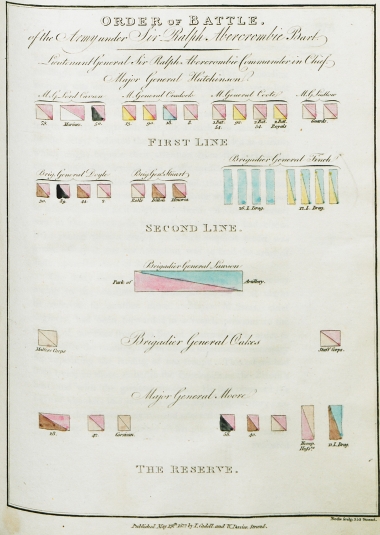 ORDER OF BATTLE,
of the Army under Sir Ralph Abercrombie Bart.
Lieutenant General Sir Ralph Abercrombie Commander in Chief
Major General Hutchinson
M.G. Lord Cavan M. General Cradock M. General Coote M.G. Ludlow
Marines. 50. 90. 18. 2.Bat. 54. 92. 2.Bat. Royals Guards.
FIRST LINE
Brigadier General Finch
Brig. General Doyle Brig. Gen. Stuart
44. Rolls Dillon Minorca 26. L. Drag. 12. L. Drag.
SECOND LINE.
Brigadier General Lawson
Park of Artillery.
Brigadier General Oakes
Maltese Corps Staff Corps.
Major General Moore
28. 42. 58. 40. Homp. Huss.rs 11. L. Drag.
THE RESERVE.
Published May 29th 1803 by T. Cadell and W. Davies Strand.